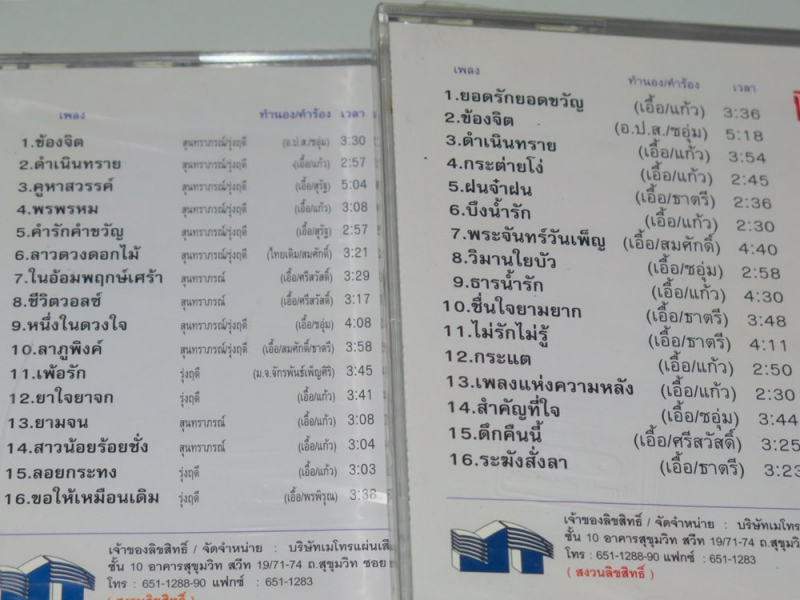 เพลง ทำนอง/คำร้อง เวลา
1.ข้องจิต สุนทราภรณ์/รุ่งฤดี (อ.ป.ส./ชอุ่ม) 3:30
2.ดำเนินทราย สุนทราภรณ์/รุ่งฤดี (เอื้อ/แก้ว) 2:57
3.คูหาสวรรค์ สุนทราภรณ์/รุ่งฤดี (เอื้อ/สุรัฐ) 5:04
4.พรพรหม สุนทราภรณ์/รุ่งฤดี (เอื้อ/แก้ว) 3:08
5.คำรักคำขวัญ สุนทราภรณ์/รุ่งฤดี (เอื้อ/สุรัฐ) 2:57
6.ลาวดวงดอกไม้ สุนทราภรณ์/รุ่งฤดี (ไทยเดิม/สมศักดิ์) 3:21
7.ในอ้อมพฤกษ์เศร้า สุนทราภรณ์ (เอื้อ/ศรีสวัสดิ์) 3:29
8.ชีวิตวอลซ์ สุนทราภรณ์ (เอื้อ/ศรีสวัสดิ์) 3:17
9.หนึ่งในดวงใจ สุนทราภรณ์/รุ่งฤดี (เอื้อ/ชอุ่ม) 4:08
10.ลาภูพิงค์ สุนทราภรณ์/รุ่งฤดี (เอื้อ/สมศักดิ์/ธาตรี) 3:58
11.เพ้อรัก รุ่งฤดี (ม.จ.จักรพันธ์เพ็ญศิริ) 3:45
12.ยาใจยาจก รุ่งฤดี (เอื้อ/แก้ว) 3:41
13.ยามจน สุนทราภรณ์ (เอื้อ/แก้ว) 3:08
14.สาวน้อยร้อยชั่ง สุนทราภรณ์ (เอื้อ/แก้ว) 3:04
15.ลอยกระทง รุ่งฤดี (เอื้อ/แก้ว) 3:03
16.ขอให้เหมือนเดิม รุ่งฤดี (เอื้อ/พรพิรุณ) 3:38
เจ้าของลิขสิทธิ์ / จัดจำหน่าย : บริษัทเมโทรแผ่นเสี
ชั้น 10 อาคารสุขุมวิท สวีท 19/71-74 ถ.สุขุมวิท ซอย
โทร : 651-1288-90 แฟกซ์ : 651-1283
( สงวนลิขสิทธิ์ )
เพลง ทำนอง/คำร้อง เวลา
1.ยอดรักยอดขวัญ (เอื้อ/แก้ว) 3:36
2.ข้องจิต (อ.ป.ส./ชอุ่ม) 5:18
3.ดำเนินทราย (เอื้อ/แก้ว) 3:54
4.กระต่ายโง่ (เอื้อ/แก้ว) 2:45
5.ฝนจำฝน (เอื้อ/ธาตรี) 2:36
6.บึงน้ำรัก (เอื้อ/แก้ว) 2:30
7.พระจันทร์วันเพ็ญ (เอื้อ/สมศักดิ์) 4:40
8.วิมานใยบัว (เอื้อ/ชอุ่ม) 2:58
9.ธารน้ำรัก (เอื้อ/แก้ว) 4:30
10.ชื่นใจยามยาก (เอื้อ/ธาตรี) 3:48
11.ไม่รักไม่รู้ (เอื้อ/ธาตรี) 4:11
12.กระแต (เอื้อ/แก้ว) 2:50
13.เพลงแห่งความหลัง (เอื้อ/แก้ว) 2:30
14.สำคัญที่ใจ (เอื้อ/ชอุ่ม) 3:44
15.ดึกคืนนี้ (เอื้อ/ศรีสวัสดิ์) 3:25
16.ระฆังสั่งลา (เอื้อ/ธาตรี) 3:23
เจ้าของลิขสิทธิ์ / จัดจำหน่าย : บริษัทเมโทร
ชั้น 10 อาคารสุขุมวิท สวีท 19/71-74 ถ.สุขุ
โทร : 651-1288-90 แฟกซ์ : 651-1283
( สงวนลิขสิทธิ์ )